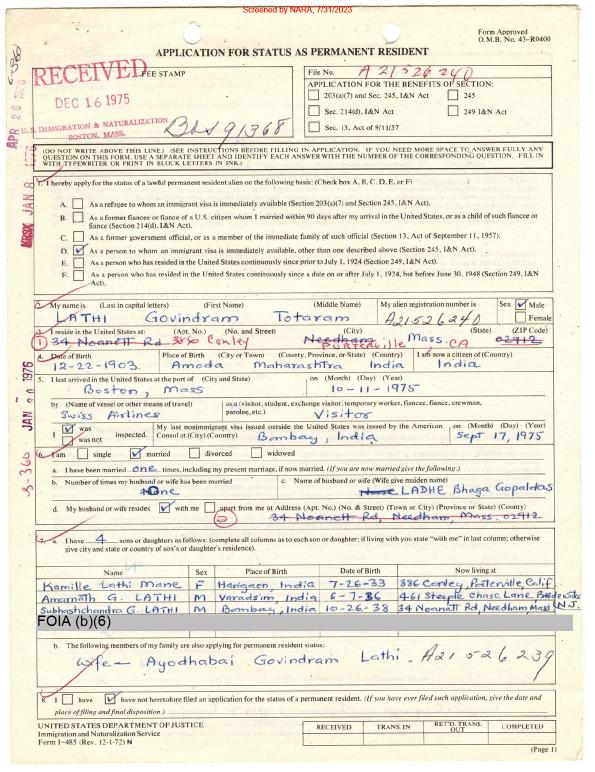 Screened by NARA, 7/31/2023
Form Approved
O.M.B. No. 43-R0400
APPLICATION FOR STATUS AS PERMANENT RESIDENT
RECEIVED
FEE STAMP
DEC 16 1975
U.S. IMMIGRATION & NATURALIZATION
BOSTON, MASS.
Bos 91368
File No. A21526240
APPLICATION FOR THE BENEFITS OF SECTION:
203(a)(7) and Sec. 245, I&N Act 245
Sec. 214(d), I&N Act 249 I&N Act
Sec. 13, Act of 9/11/57
(DO NOT WRITE ABOVE THIS LINE.) (SEE INSTRUCTIONS BEFORE FILLING IN APPLICATION. IF YOU NEED MORE SPACE TO ANSWER FULLY ANY
QUESTION ON THIS FORM, USE A SEPARATE SHEET AND IDENTIFY EACH ANSWER WITH THE NUMBER OF THE CORRESPONDING QUESTION. FILL IN
WITH TYPEWRITER OR PRINT IN BLOCK LETTERS IN INK.)
1. I hereby apply for the status of a lawful permanent resident alien on the following basis: (Check box A, B, C, D, E, or F)
A. As a refugee to whom an immigrant visa is immediately available (Section 203(a)(7) and Section 245, I&N Act).
B. As a former fiancee or fiance of a U.S. citizen whom I married within 90 days after my arrival in the United States, or as a child of such fiancee or
fiance (Section 214(d), I&N Act).
C. As a former government official, or as a member of the immediate family of such official (Section 13, Act of September 11, 1957).
D. As a person to whom an immigrant visa is immediately available, other than one described above (Section 245, I&N Act).
E. As a person who has resided in the United States continuously since prior to July 1, 1924 (Section 249, I&N Act).
F. As a person who has resided in the United States continuously since a date on or after July 1, 1924, but before June 30, 1948 (Section 249, I&N
Act).
2. My name is (Last in capital letters) (First Name) (Middle Name) My alien registration number is Sex Male
LATHI Govindram Totaram A21526240 Female
3. I reside in the United States at: (Apt. No.) (No. and Street) (City) (State) (ZIP Code)
1 34 Noanett Rd 386 Conley Needham Mass. 02912
PORTERVILLE, CA
4. Date of Birth Place of Birth (City or Town) (County, Province, or State) (Country) I am now a citizen of (Country)
12-22-1903. Amoda Maharashtra India India
5. I last arrived in the United States at the port of (City and State) on (Month) (Day) (Year)
Boston, Mass 10-11-1975
by (Name of vessel or other means of travel) as a (visitor, student, exchange visitor, temporary worker, fiancee, fiance, crewman,
parolee, etc.)
Swiss Airlines Visitor
I was
was not inspected. My last nonimmigrant visa issued outside the United States was issued by the American
Consul at (City) (Country) on (Month) (Day) (Year)
Bombay, India Sept 17, 1975
6. I am single married divorced widowed
a. I have been married one times, including my present marriage, if now married. (If you are now married give the following:)
b. Number of times my husband or wife has been married c. Name of husband or wife (Give maiden name)
One LADHE Bhaga Gopaldas
d. My husband or wife resides with me apart from me at Address (Apt. No.) (No. & Street) (Town or City) (Province or State) (County)
2 34 Noanett Rd, Needham, Mass. 02912
7. a. I have 4 sons or daughters as follows: (complete all columns as to each son or daughter; if living with you state "with me" in last column; otherwise
give city and state or country of son's or daughter's residence).
Name Sex Place of Birth Date of Birth Now living at
Kamille Lathi Mane F Harigaon, India 7-26-33 386 Conley, Porterville, Calif
Amarnath G. LATHI M Varadsim, India 6-7-36 461 Steeple Chase Lane
Subhashchandra G. LATHI M Bombay, India 10-26-38 34 Noanett Rd, Needham, Mass N.J.
FOIA (b)(6)
b. The following members of my family are also applying for permanent resident status:
Wife - Ayodhabai Govindram Lathi. A21 526 239
8. I have have not heretofore filed an application for the status of a permanent resident. (If you have ever filed such application, give the date and
place of filing and final disposition.)
UNITED STATES DEPARTMENT OF JUSTICE
Immigration and Naturalization Service
Form I-485 (Rev. 12-1-72) N
RECEIVED TRANS. IN RET'D.-TRANS. OUT COMPLETED
(Page 1)